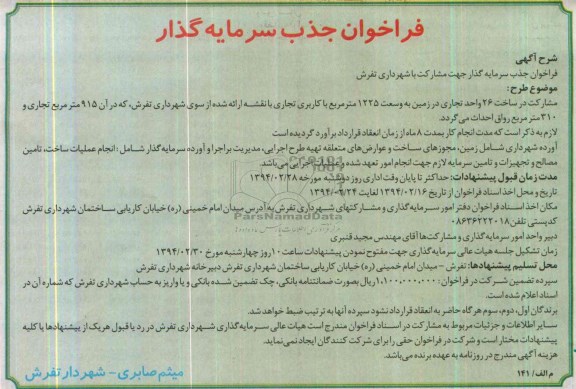 فراخوان جذب سرمایه گذار
شرح آگهی
فراخوان جذب سرمایه گذار جهت مشارکت با شهرداری تفرش
موضوع طرح:
مشارکت در ساخت ۲۶ واحد تجاری در زمین به وسعت ۱۲۲۵ مترمربع با کاربری تجاری با نقشه ارائه شده از سوی شهرداری تفرش، که در آن ۹۱۵ متر مربع تجاری و
۳۱۰ متر مربع رواق احداث می گردد.
لازم به ذکر است که مدت انجام کار بمدت ۸ ماه از زمان انعقاد قرارداد برآورد گردیده است
آورده شهرداری شامل زمین، مجوزهای ساخت و عوارض های متعلقه تهیه طرح اجرایی، مدیریت براجرا و آورده سرمایه گذار شامل: انجام عملیات ساخت، تامین
مصالح و تجهیزات و تامین سرمایه لازم جهت انجام امور تعهد شده و عملیات اجرایی می باشد.
مدت زمان قبول پیشنهادات: حداکثر تا پایان وقت اداری روز دوشنبه مورخه ۱۳۹۴/۰۲/۲۸
تاریخ و محل اخذ اسناد فراخوان از تاریخ ۱۳۹۴/۰۲/۱۶ لغایت ۱۳۹۴/۰۲/۲۴
مکان اخذ اسناد فراخوان دفتر امور سرمایه گذاری و مشارکتهای شهرداری تفرش به آدرس میدان امام خمینی (ره) خیابان کاریابی ساختمان شهرداری تفرش
کدپستی تلفن ۰۸۶۳۶۲۲۲۰۱۸
دبیر واحد امور سرمایه گذاری و مشارکت ها آقای مهندس مجید قنبری
زمان تشکیل جلسه هیات عالی سرمایه گذاری جهت مفتوح نمودن پیشنهادات ساعت ۱۰ روز چهارشنبه مورخ ۱۳۹۴/۰۲/۳۰
محل تسلیم پیشنهادها: تفرش - میدان امام خمینی (ره) خیابان کاریابی ساختمان شهرداری تفرش دبیرخانه شهرداری تفرش
سپرده تضمین شرکت در فراخوان: ۱،۱۰۰،۰۰۰،۰۰۰ ریال بصورت ضمانتنامه بانکی، چک تضمین شده بانکی و یا واریز به حساب شهرداری تفرش که شماره آن در
اسناد اعلام شده است.
برندگان اول، دوم، سوم هر گاه حاضر به انعقاد قرارداد نشود سپرده آنها به ترتیب ضبط خواهد شد.
سایر اطلاعات و جزئیات مربوط به مشارکت در اسناد فراخوان مندرج است هیات عالی سرمایه گذاری شهرداری تفرش در رد یا قبول هر یک از پیشنهادها یا کلیه
پیشنهادات مختار است و شرکت در فراخوان حقی را برای شرکت کنندگان ایجاد نمی نماید.
هزینه آگهی مندرج در روزنامه به عهده برنده می باشد.
م الف/ ۱۴۱
میثم صابری - شهردار تفرش
ParsNamadData